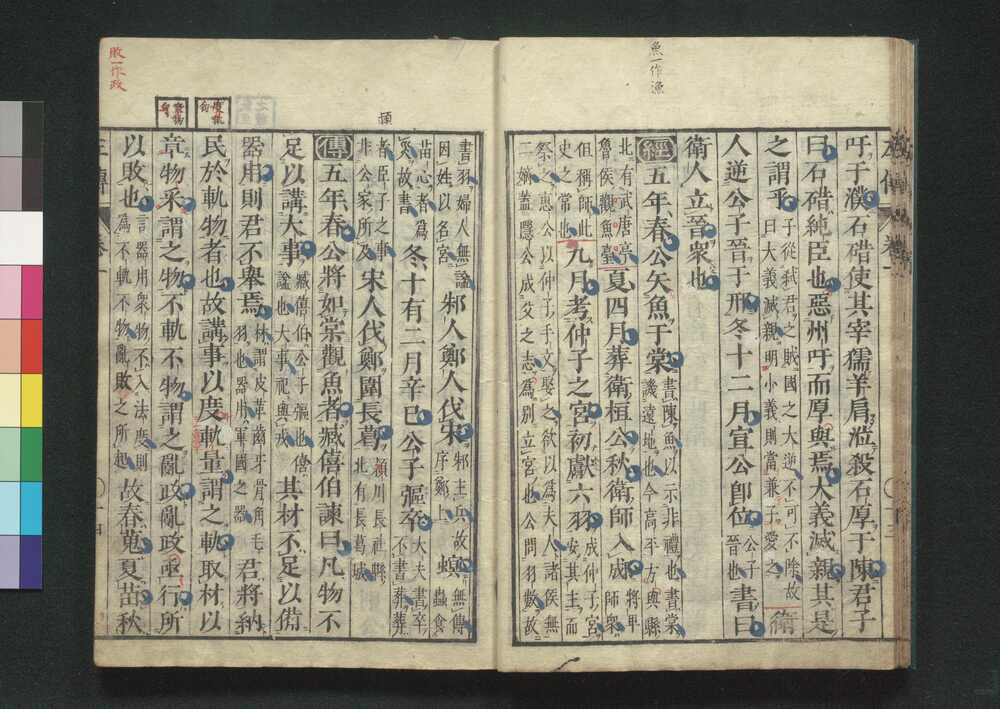 魚一作漁
吁于濮石碏使其宰獳羊肩涖殺石厚于陳君子
曰石碏純臣也惡州吁而厚與焉大義滅親其是
之謂乎子從弑君之賊國之大逆不可不除故曰大義滅親明小義則當兼子愛之衛
人逆公子晉于邢冬十二月宣公卽位公子晉也書曰
衛人立晉衆也
經五年春公矢魚于棠書陳魚以示非禮也書棠譏遠地也今高平方與縣
北有武唐亭魯侯觀魚臺夏四月葬衛桓公秋衛師入郕將卑師衆
但稱師此史之常也九月考仲子之宮初獻六羽成仲子宮安其主而
祭之惠公以仲子手文娶之欲以為夫人諸侯無二嫡蓋隱公成父之志為別立宮也公問羽數故
敗一作政
書羽婦人無謚因姓以名宮邾人鄭人伐宋邾主兵故序鄭上螟無傳蟲食
苗心者為災故書冬十有二月辛巳公子彄卒大夫書卒不書葬葬
者臣子之事非公家所及宋人伐鄭圍長葛潁川長社縣北有長葛城
傳五年春公將如棠觀魚者臧僖伯諫曰凡物不
足以講大事臧僖伯公子彄也僖謚也大事祀與戎其材不足以備
器用則君不舉焉材謂皮革齒牙骨角毛羽也器用軍國之器君將納
民於軌物者也故講事以度軌量謂之軌取材以
章物采謂之物不軌不物謂之亂政亂政亟行所
以敗也言器用衆物不入法度則為不軌不物亂敗之所起故春蒐夏苗秋
左傳 卷一 十四